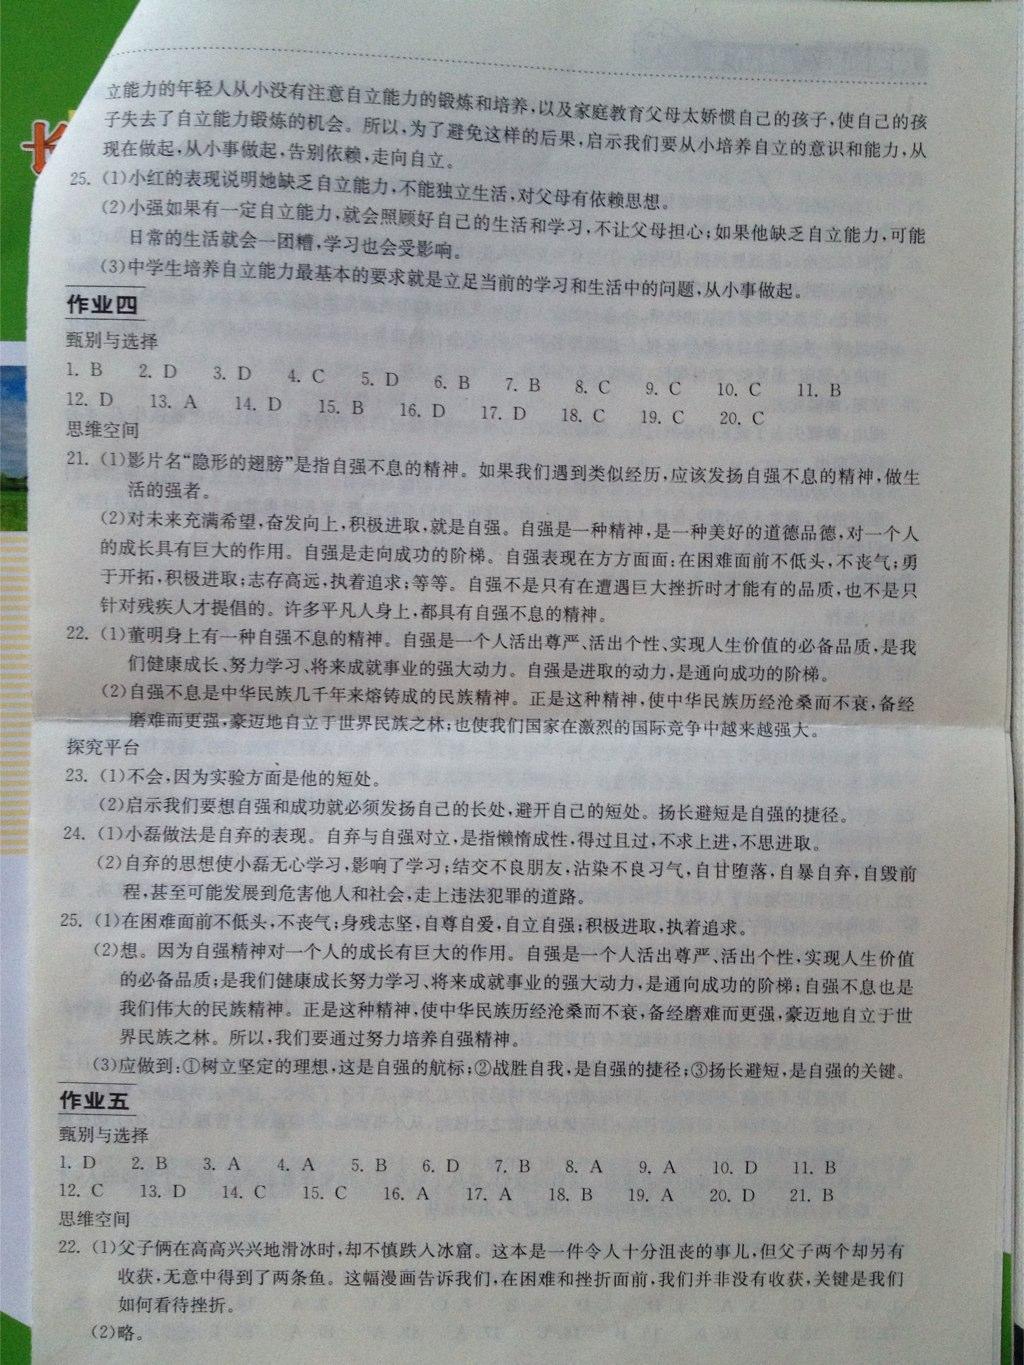 立能力的年轻人从小没有注意自立能力的锻炼和培养,以及家庭教育父母太娇惯自己的孩子,使自己的孩
子失去了自立能力锻炼的机会。所以,为了避免这样的后果,启示我们要从小培养自立的意识和能力,从
现在做起,从小事做起,告别依赖,走向自立。
25. (1)小红的表现说明她缺乏自立能力,不能独立生活,对父母有依赖思想。
(2)小强如果有一定自立能力,就会照顾好自己的生活和学习,不让父母担心;如果他缺乏自立能力,可能
日常的生活就会一团糟,学习也会受影响。
(3)中学生培养自立能力最基本的要求就是立足当前的学习和生活中的问题,从小事做起。
作业四
甄别与选择
1. B 2. D 3. D 4. C 5. D 6. B 7. B 8. C 9. C 10. C 11. B
12. D 13. A 14. D 15. B 16. D 17. D 18. C 19. C 20. C
思维空间
21. (1)影片名“隐形的翅膀”是指自强不息的精神。如果我们遇到类似经历,应该发扬自强不息的精神,做生
活的强者。
(2)对未来充满希望,奋发向上,积极进取,就是自强。自强是一种精神,是一种美好的道德品德,对一个人
的成长具有巨大的作用。自强是走向成功的阶梯。自强表现在方方面面:在困难面前不低头,不丧气;勇
于开拓,积极进取;志存高远,执着追求;等等。自强不是只有在遭遇巨大挫折时才能有的品质,也不是只
针对残疾人才提倡的。许多平凡人身上,都具有自强不息的精神。
22. (1)董明身上有一种自强不息的精神。自强是一个人活出尊严、活出个性、实现人生价值的必备品质,是我
们健康成长、努力学习、将来成就事业的强大动力。自强是进取的动力,是通向成功的阶梯。
(2)自强不息是中华民族几千年来熔铸成的民族精神。正是这种精神,使中华民族历经沧桑而不衰,备经
磨难而更强,豪迈地自立于世界民族之林;也使我们国家在激烈的国际竞争中越来越强大。
探究平台
23. (1)不会,因为实验方面是他的短处。
(2)启示我们要想自强和成功就必须发扬自己的长处,避开自己的短处。扬长避短是自强的捷径。
24. (1)小磊做法是自弃的表现。自弃与自强对立,是指懒惰成性,得过且过,不求上进,不思进取。
(2)自弃的思想使小磊无心学习,影响了学习;结交不良朋友,沾染不良习气,自甘堕落,自暴自弃,自毁前
程,甚至可能发展到危害他人和社会,走上违法犯罪的道路。
25. (1)在困难面前不低头,不丧气;身残志坚,自尊自爱,自立自强;积极进取,执着追求。
(2)想。因为自强精神对一个人的成长有巨大的作用。自强是一个人活出尊严、活出个性,实现人生价值
的必备品质;是我们健康成长努力学习、将来成就事业的强大动力,是通向成功的阶梯;自强不息也是
我们伟大的民族精神。正是这种精神,使中华民族历经沧桑而不衰,备经磨难而更强,豪迈地自立于世
界民族之林。所以,我们要通过努力培养自强精神。
(3)应做到:①树立坚定的理想,这是自强的航标;②战胜自我,是自强的捷径;③扬长避短,是自强的关键。
作业五
甄别与选择
1. D 2. B 3. A 4. A 5. B 6. D 7. B 8. A 9. A 10. D 11. B
12. C 13. D 14. C 15. C 16. A 17. A 18. B 19. A 20. D 21. B
思维空间
22. (1)父子俩在高高兴兴地滑冰时,却不慎跌人冰窟。这本是一件令人十分沮丧的事儿,但父子两个却另有
收获,无意中得到了两条鱼。这幅漫画告诉我们,在困难和挫折面前,我们并非没有收获,关键是我们
如何看待挫折。
(2)略。